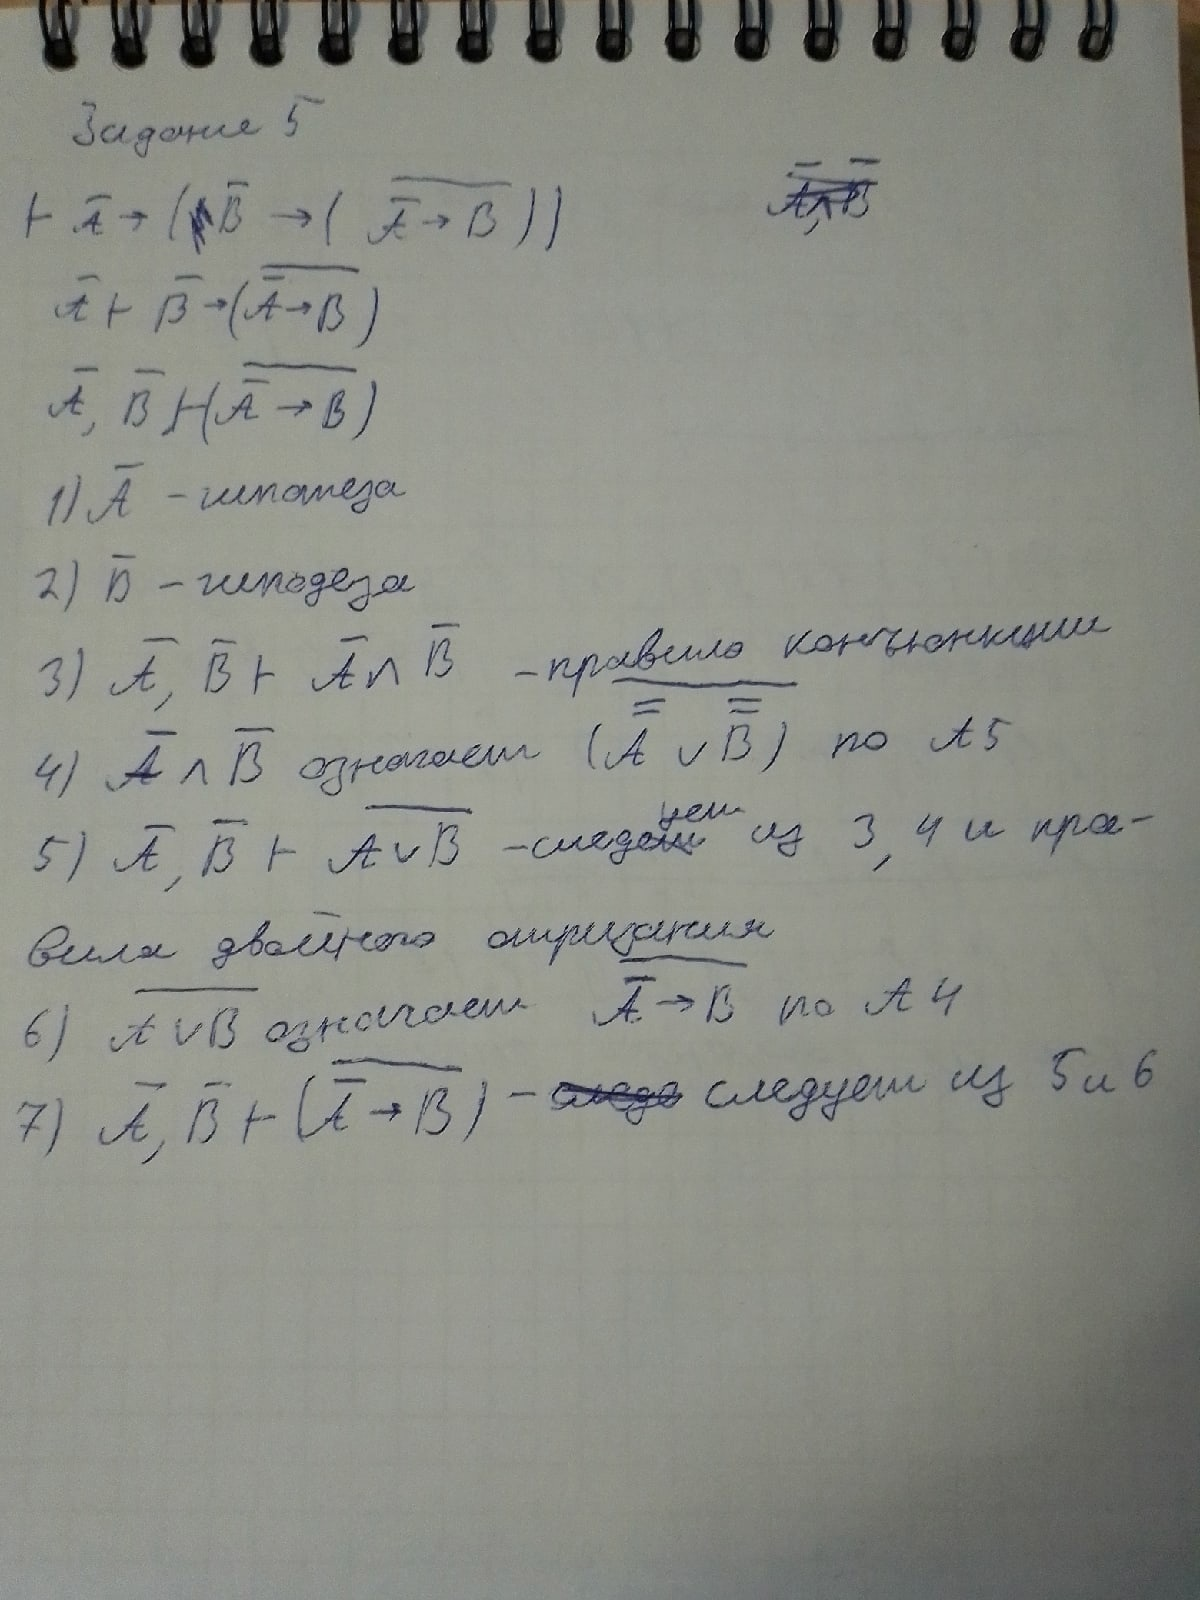 Задание 5
⊢ A̅ → (B̅ → ( \overline{A̅ → B} ))
A̅ ⊢ B̅ → (\overline{A̅ → B})
A̅, B̅ ⊢ (\overline{A̅ → B})
1) A̅ - гипотеза
2) B̅ - гиподеза
3) A̅, B̅ ⊢ A̅ ∧ B̅ - правило конъюнкции
4) A̅ ∧ B̅ означает (\overline{A̿ ∨ B̿}) по А5
5) A̅, B̅ ⊢ \overline{A ∨ B} - следует из 3, 4 и пра-
вила двойного отрицания
6) \overline{A ∨ B} означает \overline{A̅ → B} по А4
7) A̅, B̅ ⊢ (\overline{A̅ → B}) - следует из 5 и 6